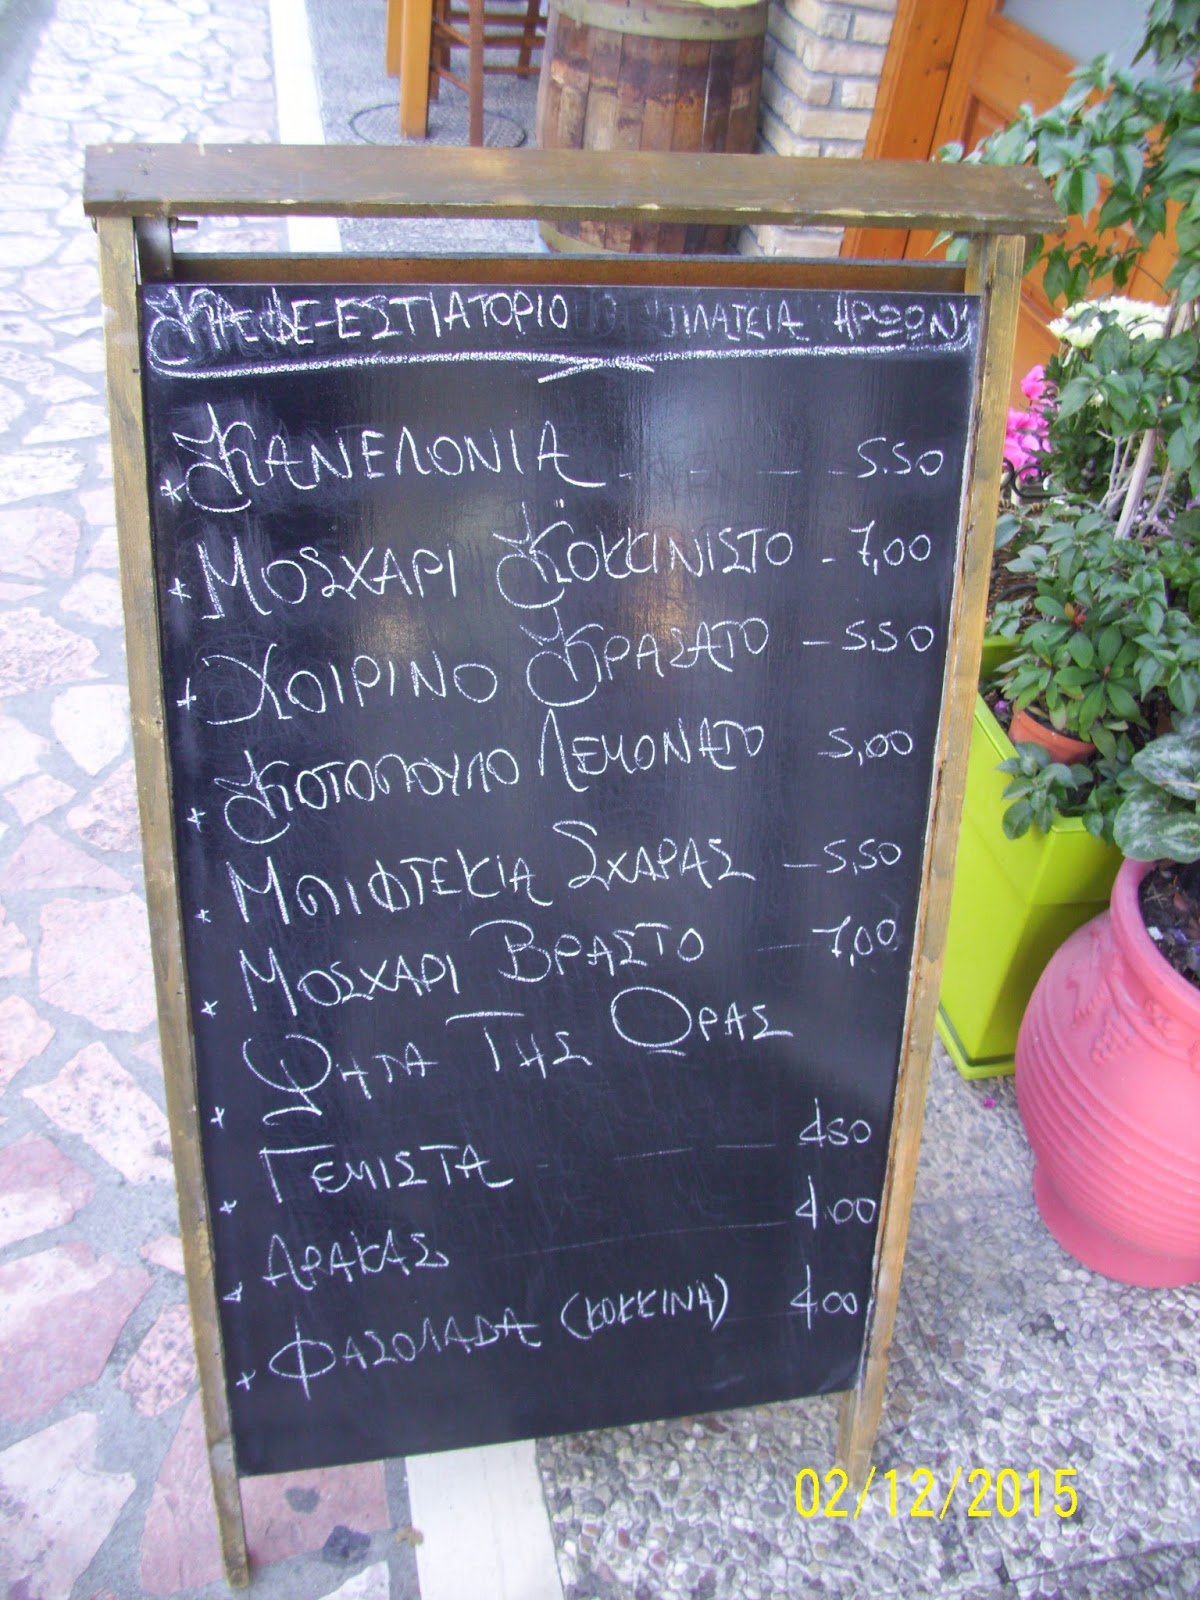 ΚΑΦΕ-ΕΣΤΙΑΤΟΡΙΟ "ΠΛΑΤΕΙΑ ΗΡΩΩΝ"
* ΚΑΝΕΛΟΝΙΑ - - - - 5.50
* ΜΟΣΧΑΡΙ ΚΟΚΚΙΝΙΣΤΟ - 7,00
+ ΧΟΙΡΙΝΟ ΚΡΑΣΑΤΟ - 5.50
* ΚΟΤΟΠΟΥΛΟ ΛΕΜΟΝΑΤΟ 5,00
* ΜΠΙΦΤΕΚΙΑ ΣΧΑΡΑΣ - 5,50
* ΜΟΣΧΑΡΙ ΒΡΑΣΤΟ - 7,00
+ ΨΗΤΑ ΤΗΣ ΩΡΑΣ
+ ΓΕΜΙΣΤΑ - - - 4.50
* ΑΡΑΚΑΣ 4.00
+ ΦΑΣΟΛΑΔΑ (ΚΟΚΚΙΝΗ) 4.00
02/12/2015